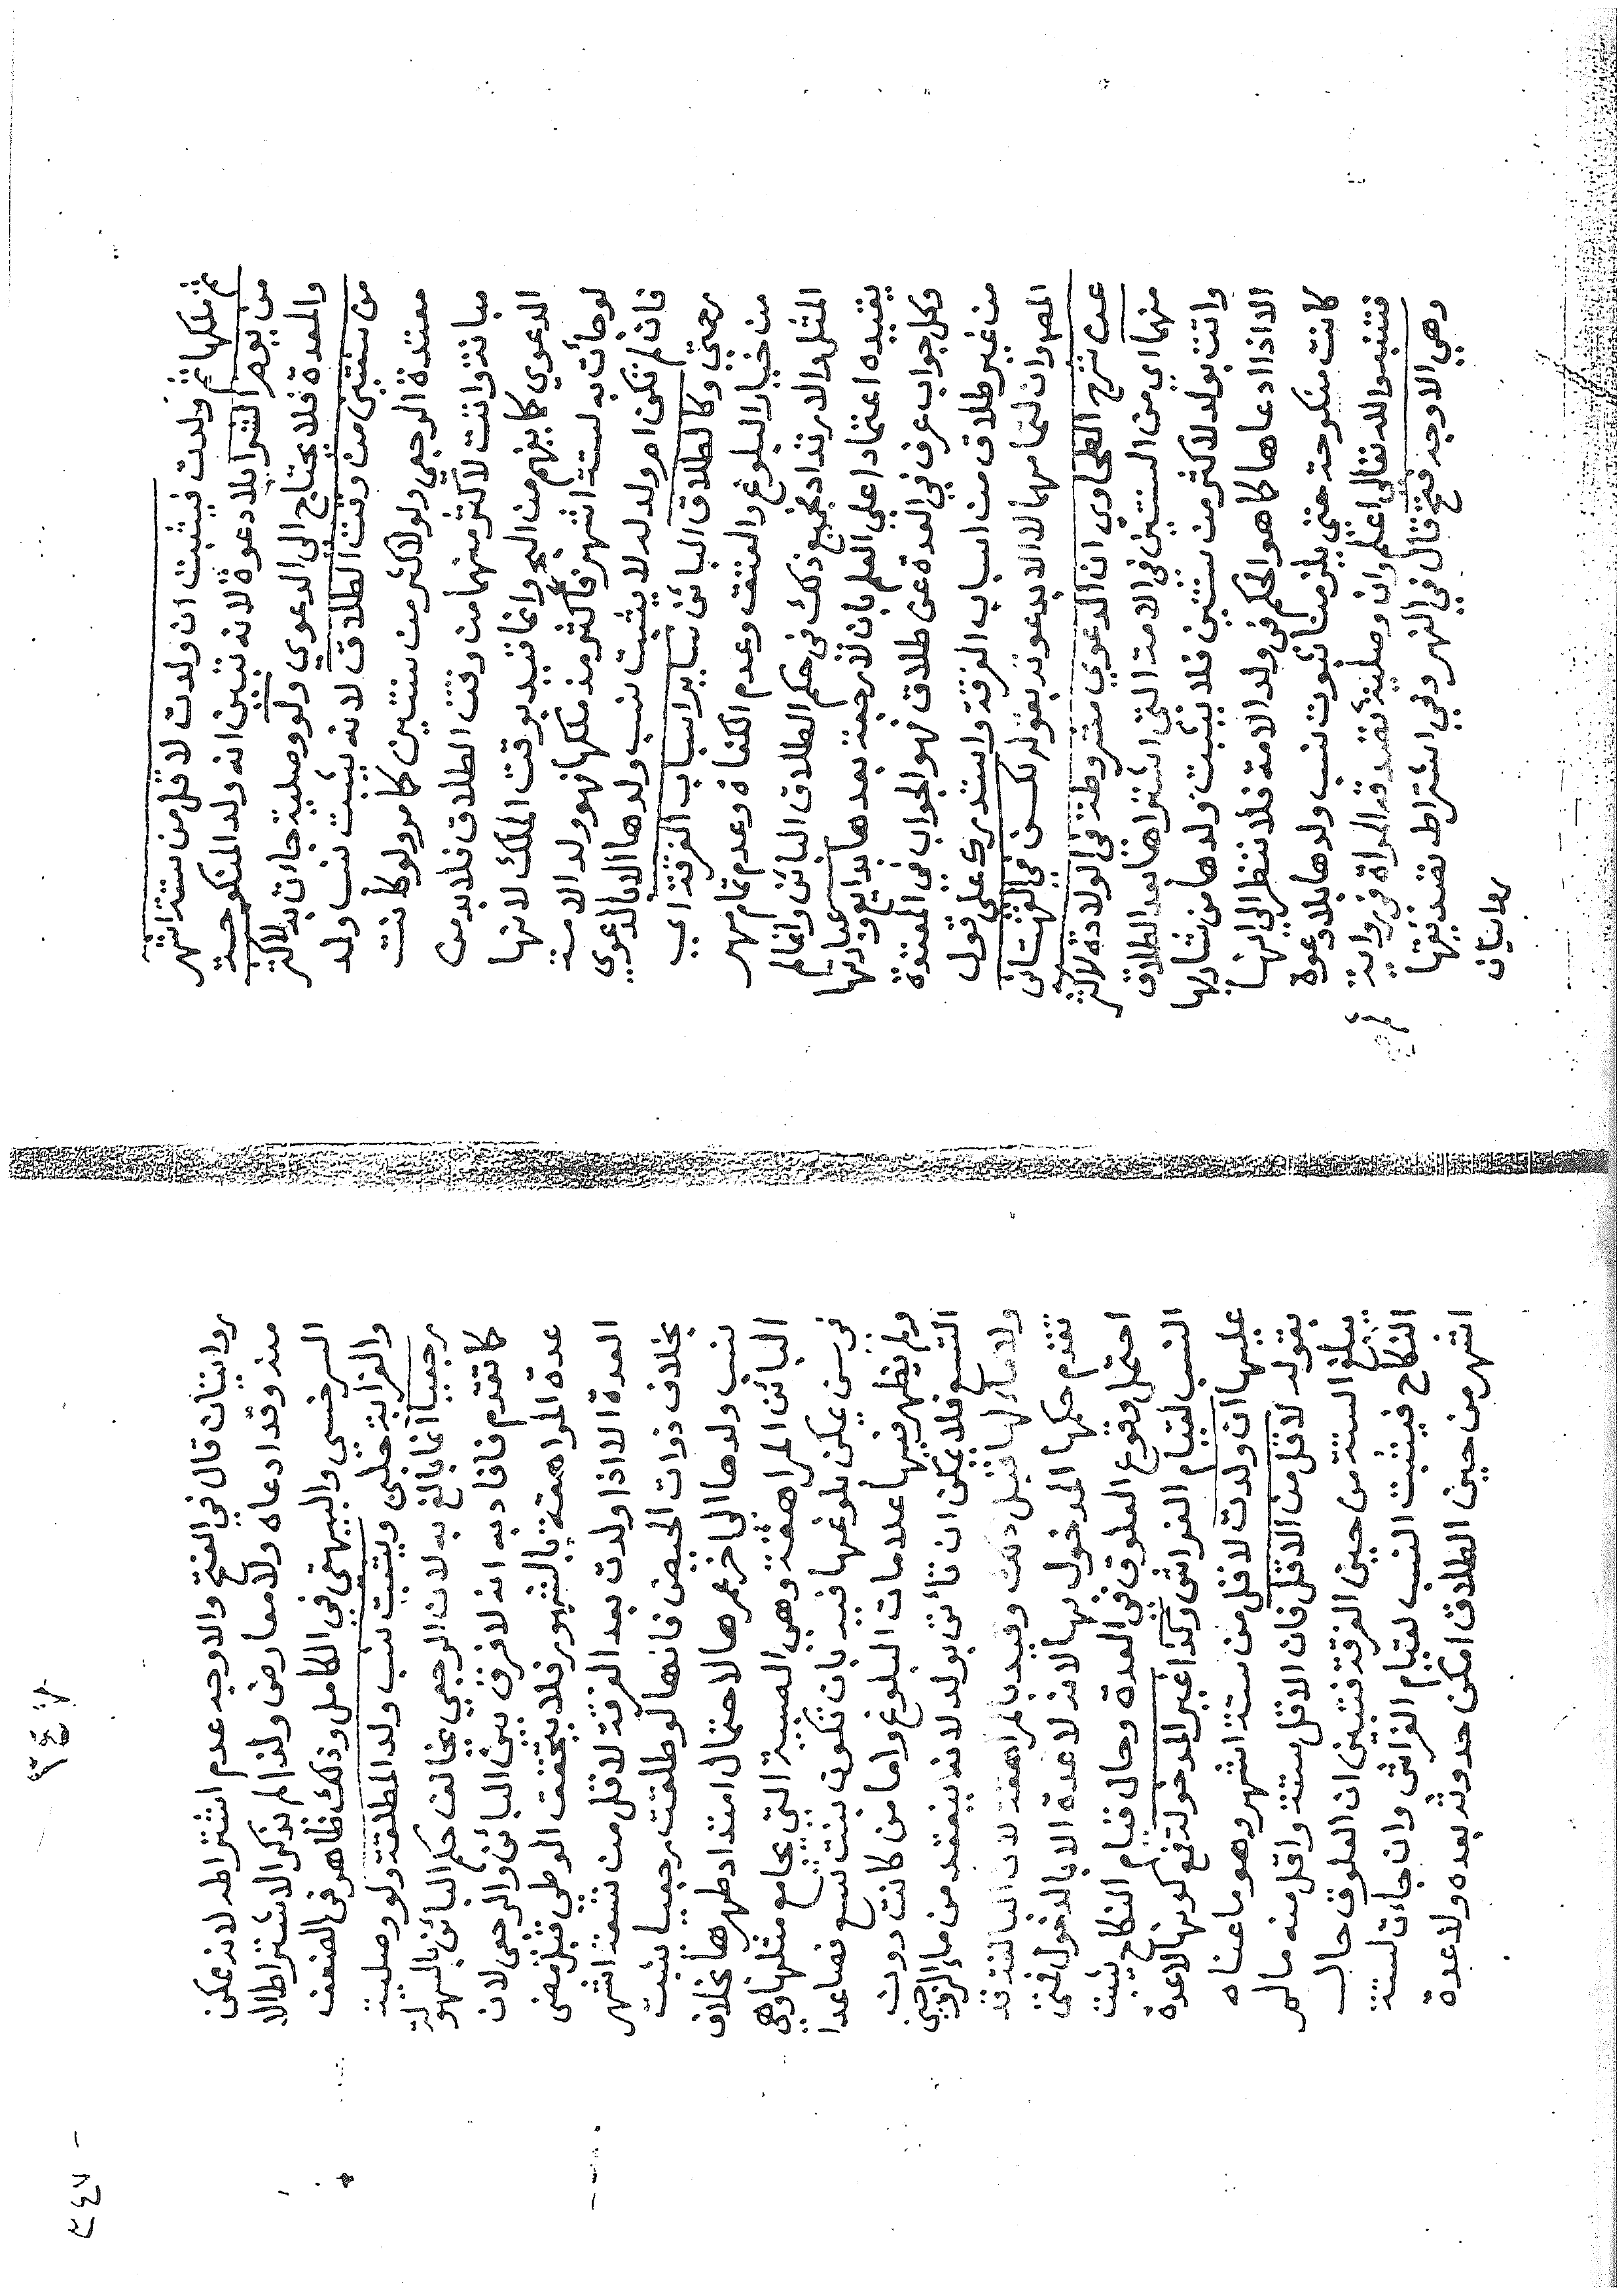 ثم ملكها ثم ولدت فيثبت ان ولدت لاقل من ستة اشهر
من يوم الشرا بلا دعوة لانه تبين انه ولد المنكوحة
والمعدة فلا يحتاج الى الدعوي ولو وصلية جات به لاكثر
من سنتين من وقت الطلاق لانه يثبت نسب ولد
معتدة الرجعي ولو لاكثر من سنتين كما مر ولو كانت
مبانة واتت لاكثر منهما من وقت الطلاق فلابد من
الدعوي كما يفهم من البحر وانما قيد بوقت الملك لانها
لو جأت به لستة اشهر فأكثر منذ ملكها فهو ولد الامة
فان لم تكن ام ولد له لا يثبت نسب ولدها الا بالدعوي
رحمتي وكالطلاق البائن سائر اسباب الفرقة اي
من خيار البلوغ والعتق وعدم الكفاة وعدم تمام مهر
المثل والارتداد فجميع ذلك في حكم الطلاق البائن وانما لم
يقيده اعتمادا علي العلم بان لا رجعة بعدها بدايع وعبارتها
وكل جواب عرف في العدة عن طلاق فهو الجواب في المعتدة
من غير طلاق من اسباب الفرقة واستدرك علي قول
المص وان لتمامهما لا الا بدعوته بقوله لكن في القهستاني
عن شرح الطحاوى ان الدعوي مشروطة في الولادة لاكثر
منهما اي من السنتين في الامة التي اشتراها بعد الطلاق
واتت بولد لاكثر من سنتين فلا يثبت ولدها من شاريها
الا اذا ادعاها كما هو الحكم في ولد الامة فلا ننظر الي انها
كانت منكوحة حتي يلزمنا ثبوت نسب ولدها بلا دعوة
فتنبه والله تعالي اعلم وان وصلية تصدقه المراة في رواية
وهي الاوجه فتح قال في النهر وفي اشتراط تصديقها
روايتان
روايتان قال في الفتح والاوجه عدم اشتراطه لانه ممكن
منه وقد ادعاه ولا معارض ولذا لم يذكر الاشتراط الا
السرخسي والبيهقي في الكامل وذلك ظاهر في الضعف
والغرابة حلبي ويثبت نسب ولد المطلقة ولو وصلية
رجعيا انما بالغ به لان الرجعي يخالف حكم البائن بالسهولة
كما تقدم فافاد به انه لا فرق بين البائن والرجعي لان
عدة المراهقة بالشهور فلا يتحقق الوطي قبل مضي
العدة الا اذا ولدت بعد الفرقة لاقل من تسعة اشهر
بخلاف ذوات الحيض فانها لو طلقت رجعيا يثبت
نسب ولدها الى اخر عمرها لاحتمال امتداد طهرها بخلاف
البائن المراهقة وهي الصبية التي يجامع مثلها وهي
في سن يمكن بلوغها فيه بان تكون بنت تسع فصاعدا
ولم يظهر فيها علامات البلوغ واما من كانت دون
التسع فلا يمكن ان تأتي بولد لانه ينعقد من ماء الزوجين
ولا ماء لها قبل ذلك وقيد بالمراهقة لان البالغة قد
تقدم حكمها المدخول بها لانه لا عدة الا بالدخول فمتى
احتمل وقوع العلوق في العدة وحال قيام النكاح يثبت
النسب لقيام الفراش وكذا غير المدخولة مع كونها لا عدة
عليها ان ولدت لاقل من ستة اشهر وهو ما عناه
بقوله لاقل من الاقل فان الاقل ستة واقل منه ما لم
يبلغ الستة من حين الفرقة فتبين ان العلوق حال
النكاح فيثبت النسب لقيام الفراش وان جاءت لستة
اشهر من حين الطلاق امكن حدوثه بعده ولا عدة